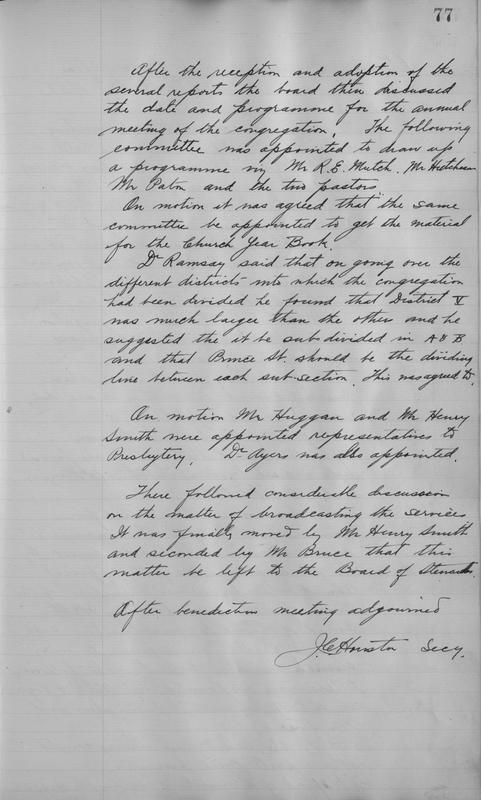 77
After the reception and adoption of the
several reports the board then discussed
the date and programme for the annual
meeting of the congregation. The following
committee was appointed to draw up
a programme viz Mr R. E. Mutch. Mr Hutcheson
Mr Paton and the two pastors
On motion it was agreed that the same
committee be appointed to get the material
for the Church Year Book.
Dr Ramsay said that on going over the
different districts into which the congregation
had been divided he found that District V
was much larger than the others and he
suggested the it be subdivided in A & B
and that Prince St. should be the dividing
line between each sub-section. This was agreed to.
On motion Mr Huggan and Mr Henry
Smith were appointed representatives to
Presbytery. Dr Ayers was also appointed.
There followed considerable discussion
on the matter of broadcasting the services
It was finally moved by Mr Henry Smith
and seconded by Mr Bruce that this
matter be left to the Board of Stewards.
After benediction meeting adjourned
J. C. Houston Secy.